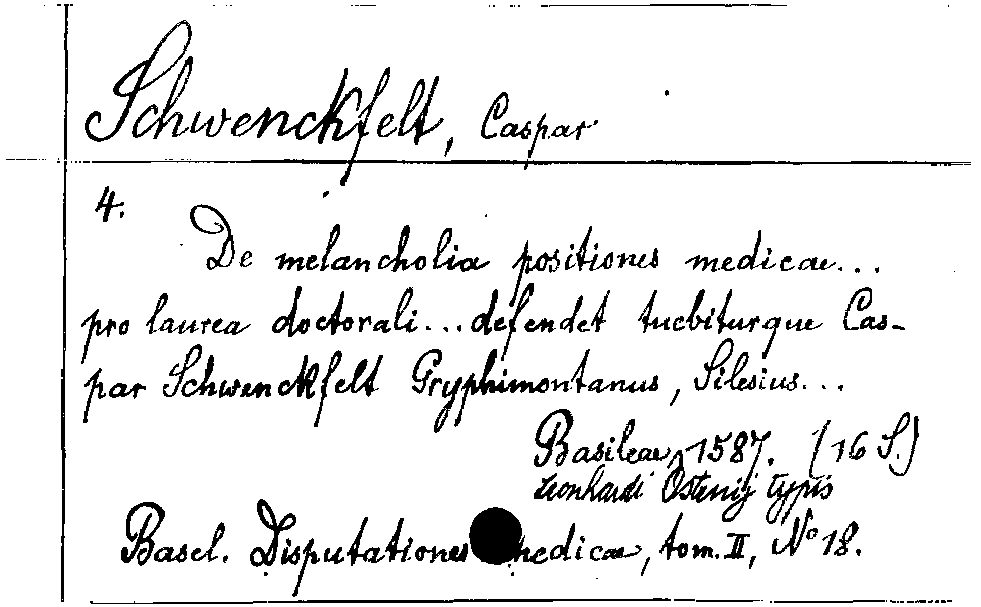 Schwenckfelt, Caspar
4.
De melancholia positiones medicae...
pro laurea doctorali...defendet tuebiturque Cas-
par Schwenckfelt Gryphimontanus, Silesius...
Basileae, 1587. (16 S.)
Leonhardi Ostenij typis
Basel. Disputationes medicae, tom. II, No 18.